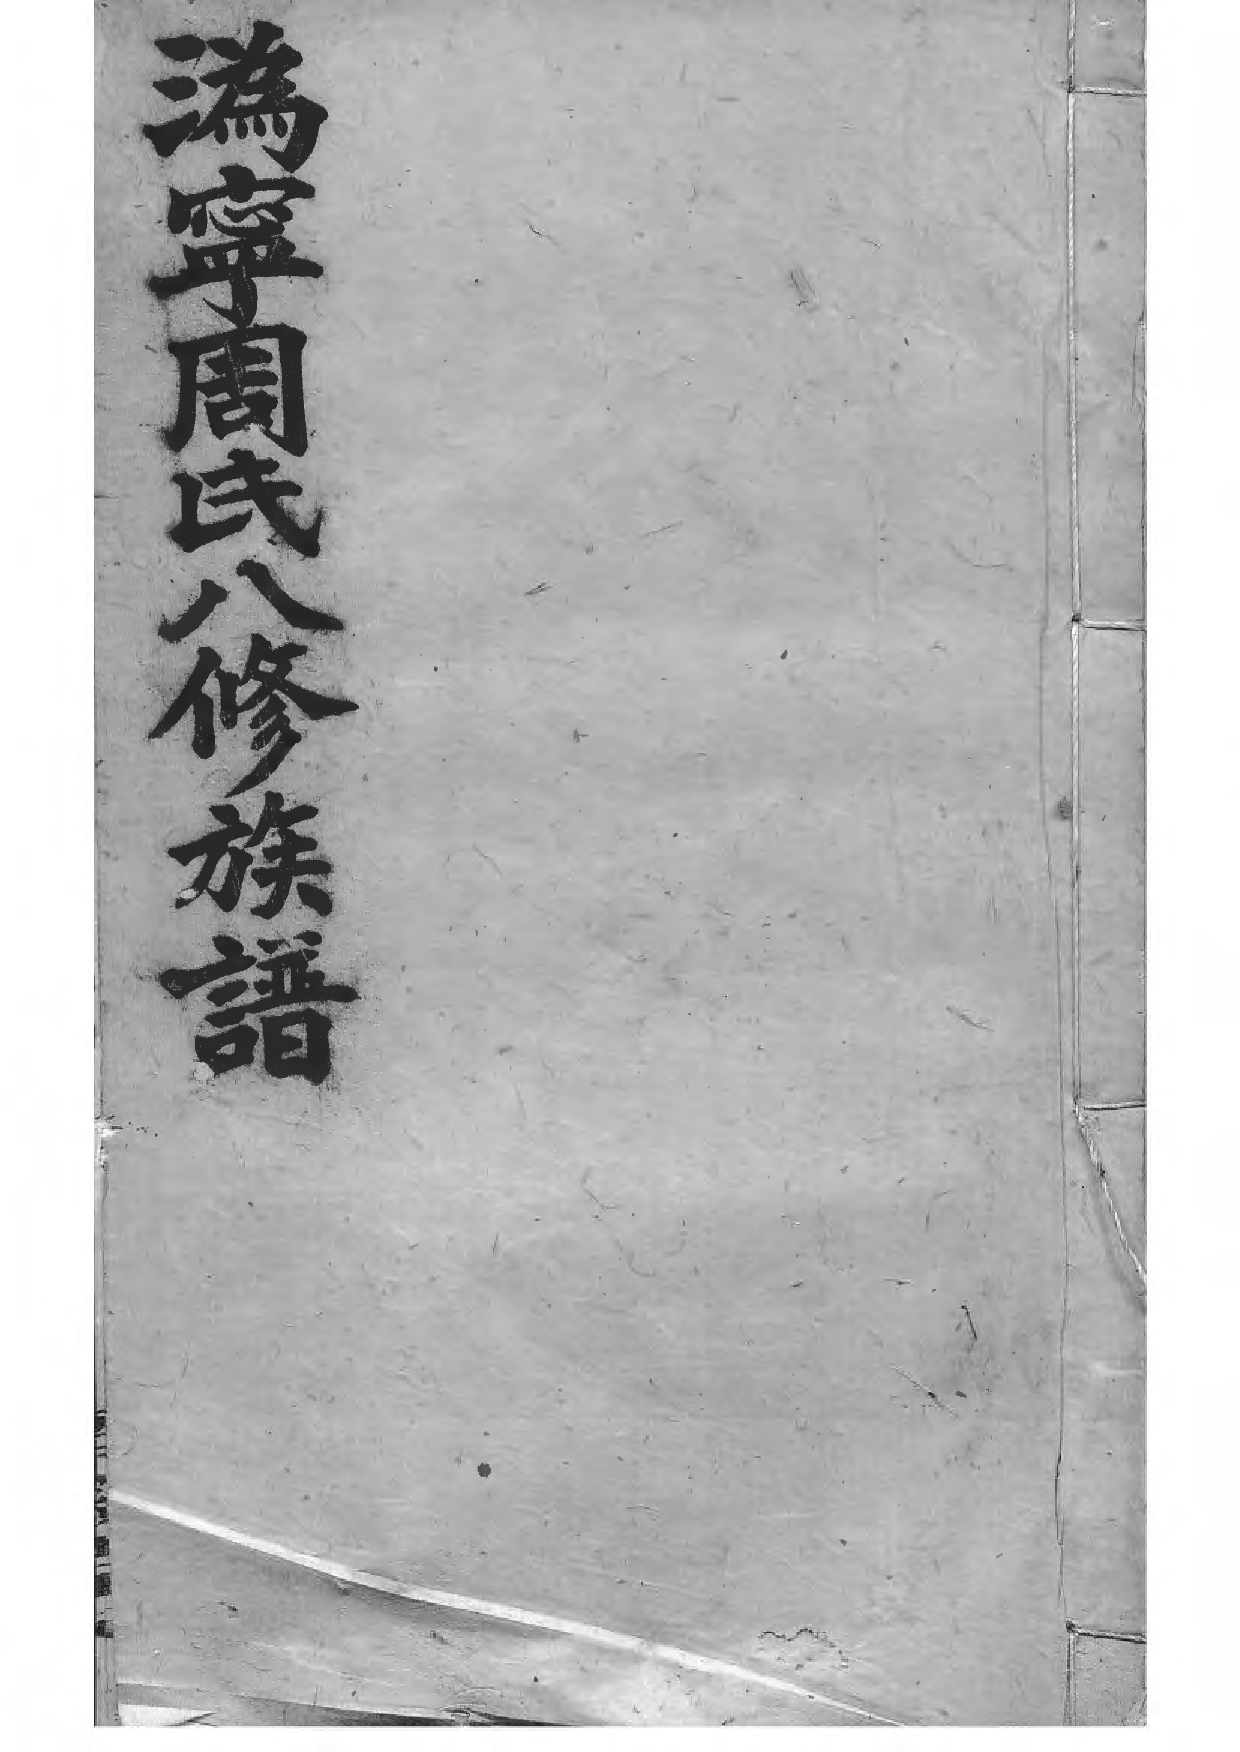 溈寧周氏八修族譜